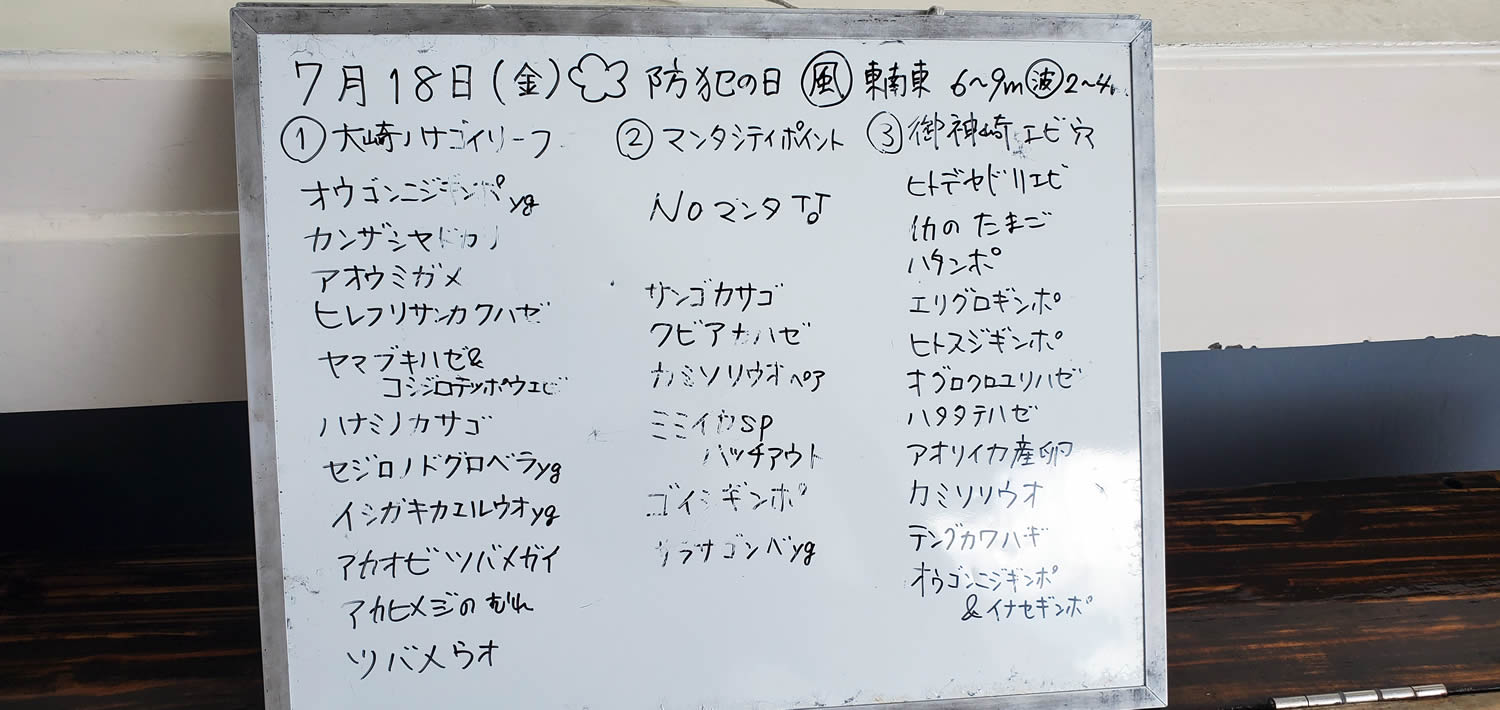 7月18日(金) 防犯の日 風 東南東 6〜9m 波 2〜4m
① 大崎ハナゴイリーフ
オウゴンニジギンポyg
カンザシヤドカリ
アオウミガメ
ヒレフリサンカクハゼ
ヤマブキハゼ&
コシジロテッポウエビ
ハナミノカサゴ
セジロノドグロベラyg
イシガキカエルウオyg
アカオビツバメガイ
アカヒメジのむれ
ツバメウオ
② マンタシティポイント
Noマンタ
サンゴカサゴ
クビアカハゼ
カミソリウオペア
ミミイカsp
ハッチアウト
ゴイシギンポ
サラサゴンベyg
③ 御神崎エビ穴
ヒトデヤドリエビ
イカのたまご
ハタンポ
エリグロギンポ
ヒトスジギンポ
オグロクロユリハゼ
ハタタテハゼ
アオリイカ産卵
カミソリウオ
テングカワハギ
オウゴンニジギンポ
&イナセギンポ